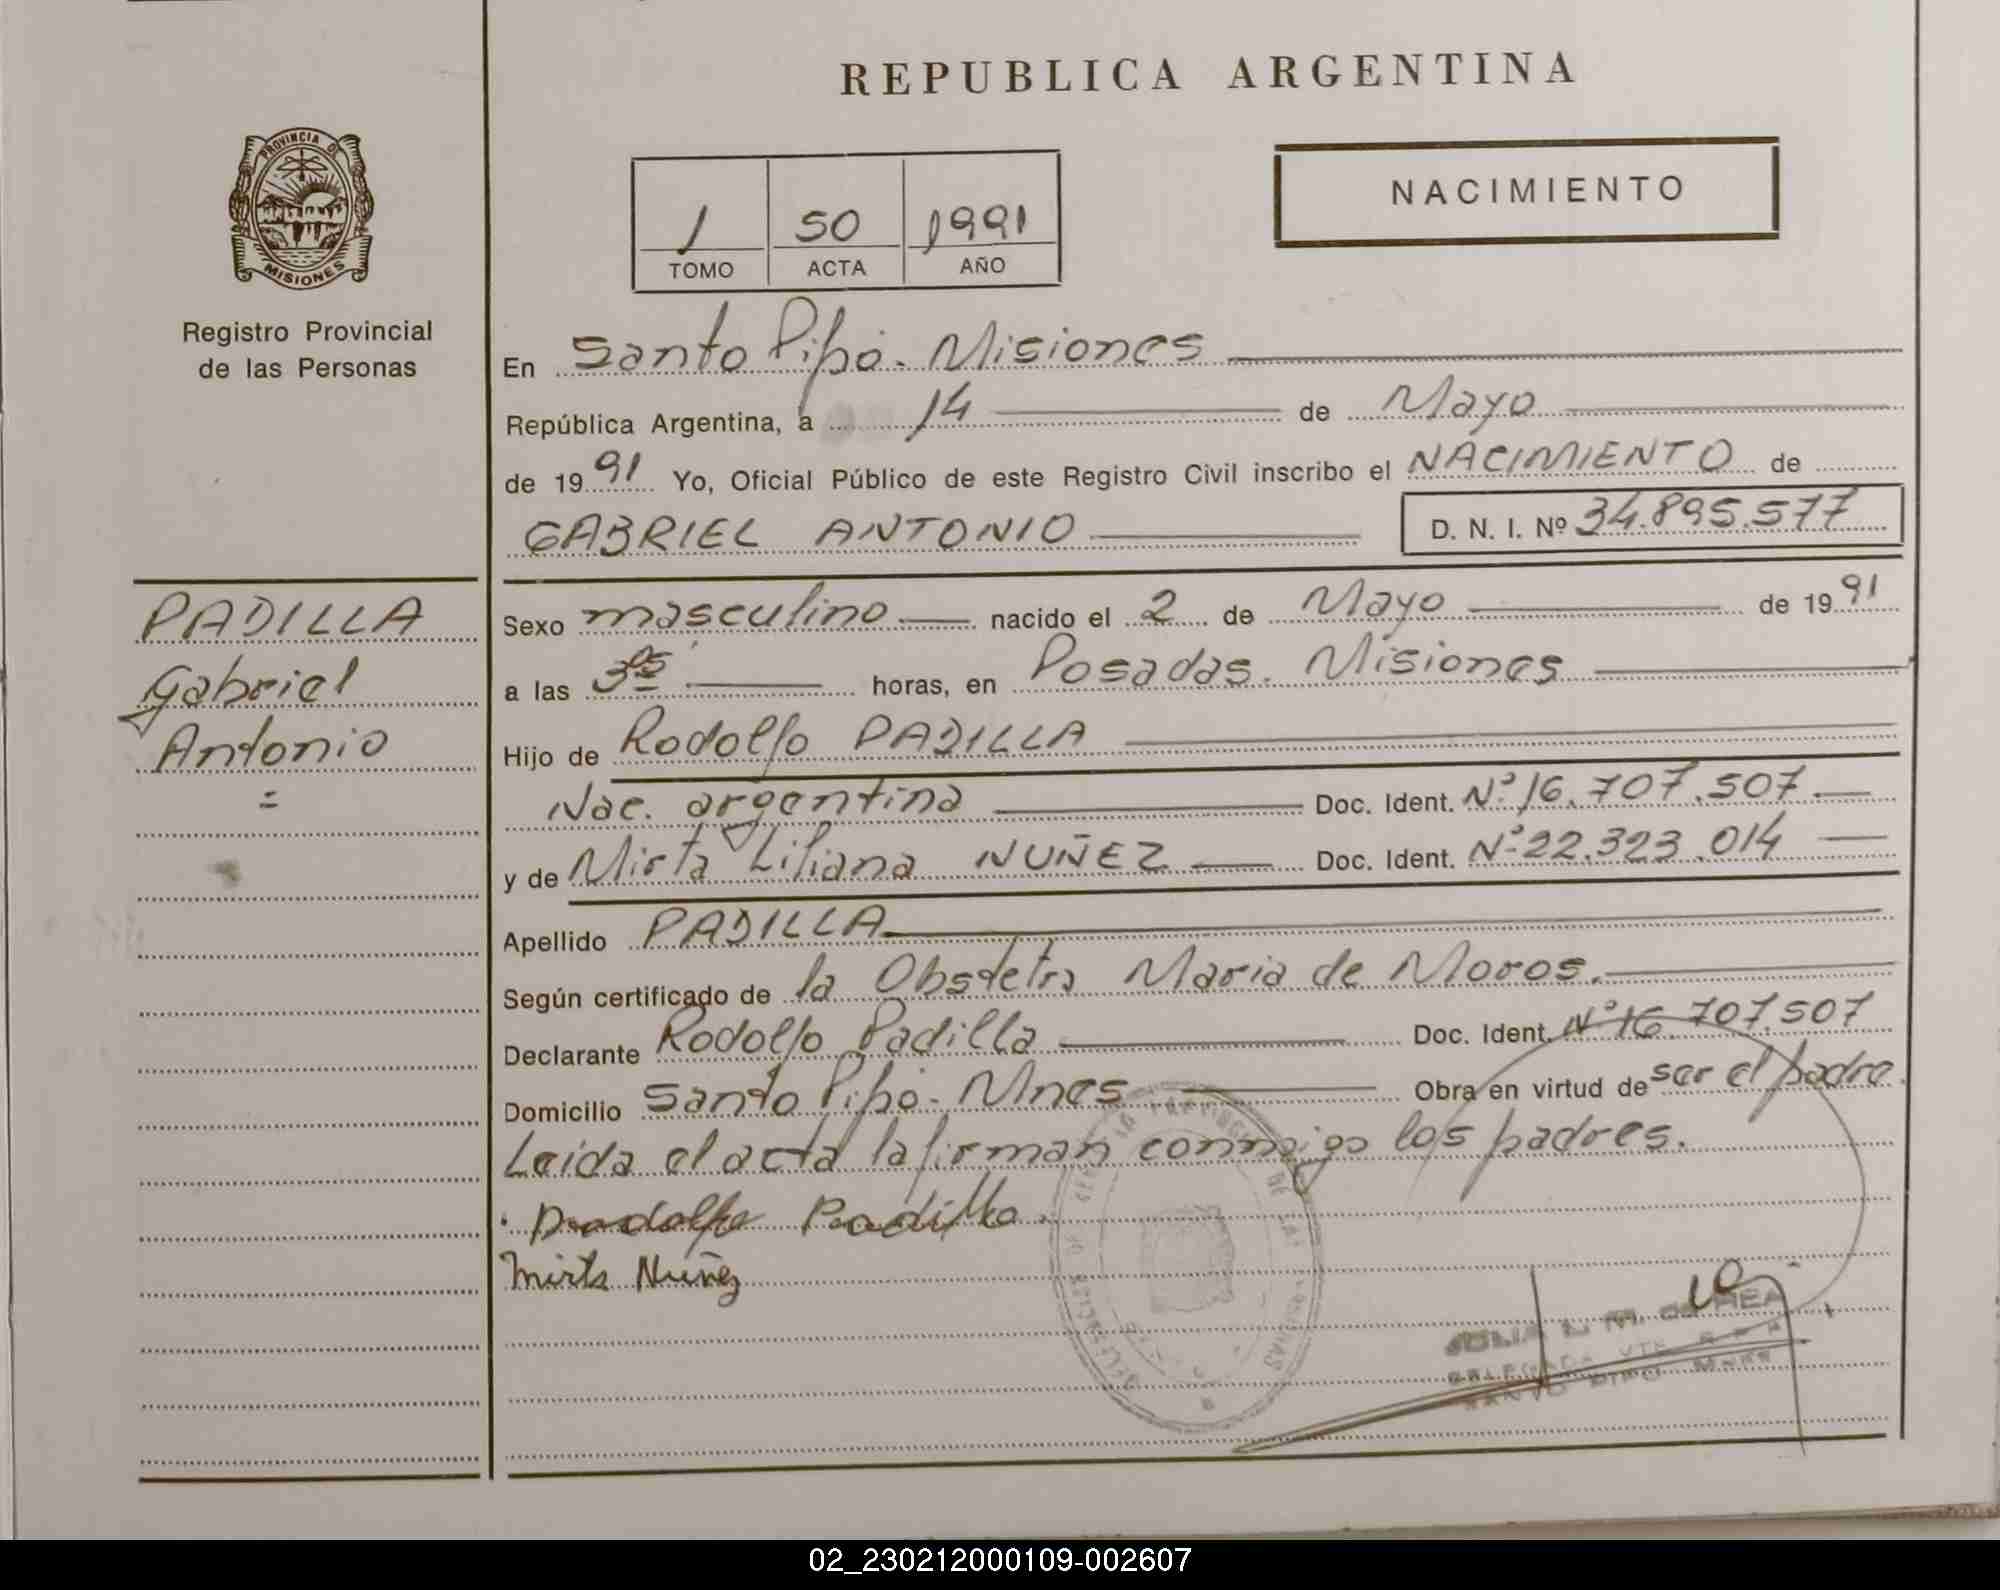 REPUBLICA ARGENTINA
PROVINCIA D
MISIONES
Registro Provincial
de las Personas
1 50 1991
TOMO ACTA AÑO
NACIMIENTO
En Santo Pipó - Misiones
República Argentina, a 14 de Mayo
de 1991 Yo, Oficial Público de este Registro Civil inscribo el NACIMIENTO de
GABRIEL ANTONIO D. N. I. Nº 34.895.577
PADILLA
Gabriel
Antonio
=
Sexo masculino nacido el 2 de Mayo de 1991
a las 3 05 horas, en Posadas. Misiones
Hijo de Rodolfo PADILLA
Nac. argentina Doc. Ident. Nº 16.707.507
y de Mirta Liliana NUÑEZ Doc. Ident. Nº 22.323.014
Apellido PADILLA
Según certificado de la Obstetra Maria de Moros.
Declarante Rodolfo Padilla Doc. Ident. Nº 16.707.507
Domicilio Santo Pipó - Mnes Obra en virtud de ser el padre.
Leída el acta la firman conmigo los padres.
Rodolfo Padilla
Mirta Nuñez
SANTO PIPO
02_230212000109-002607